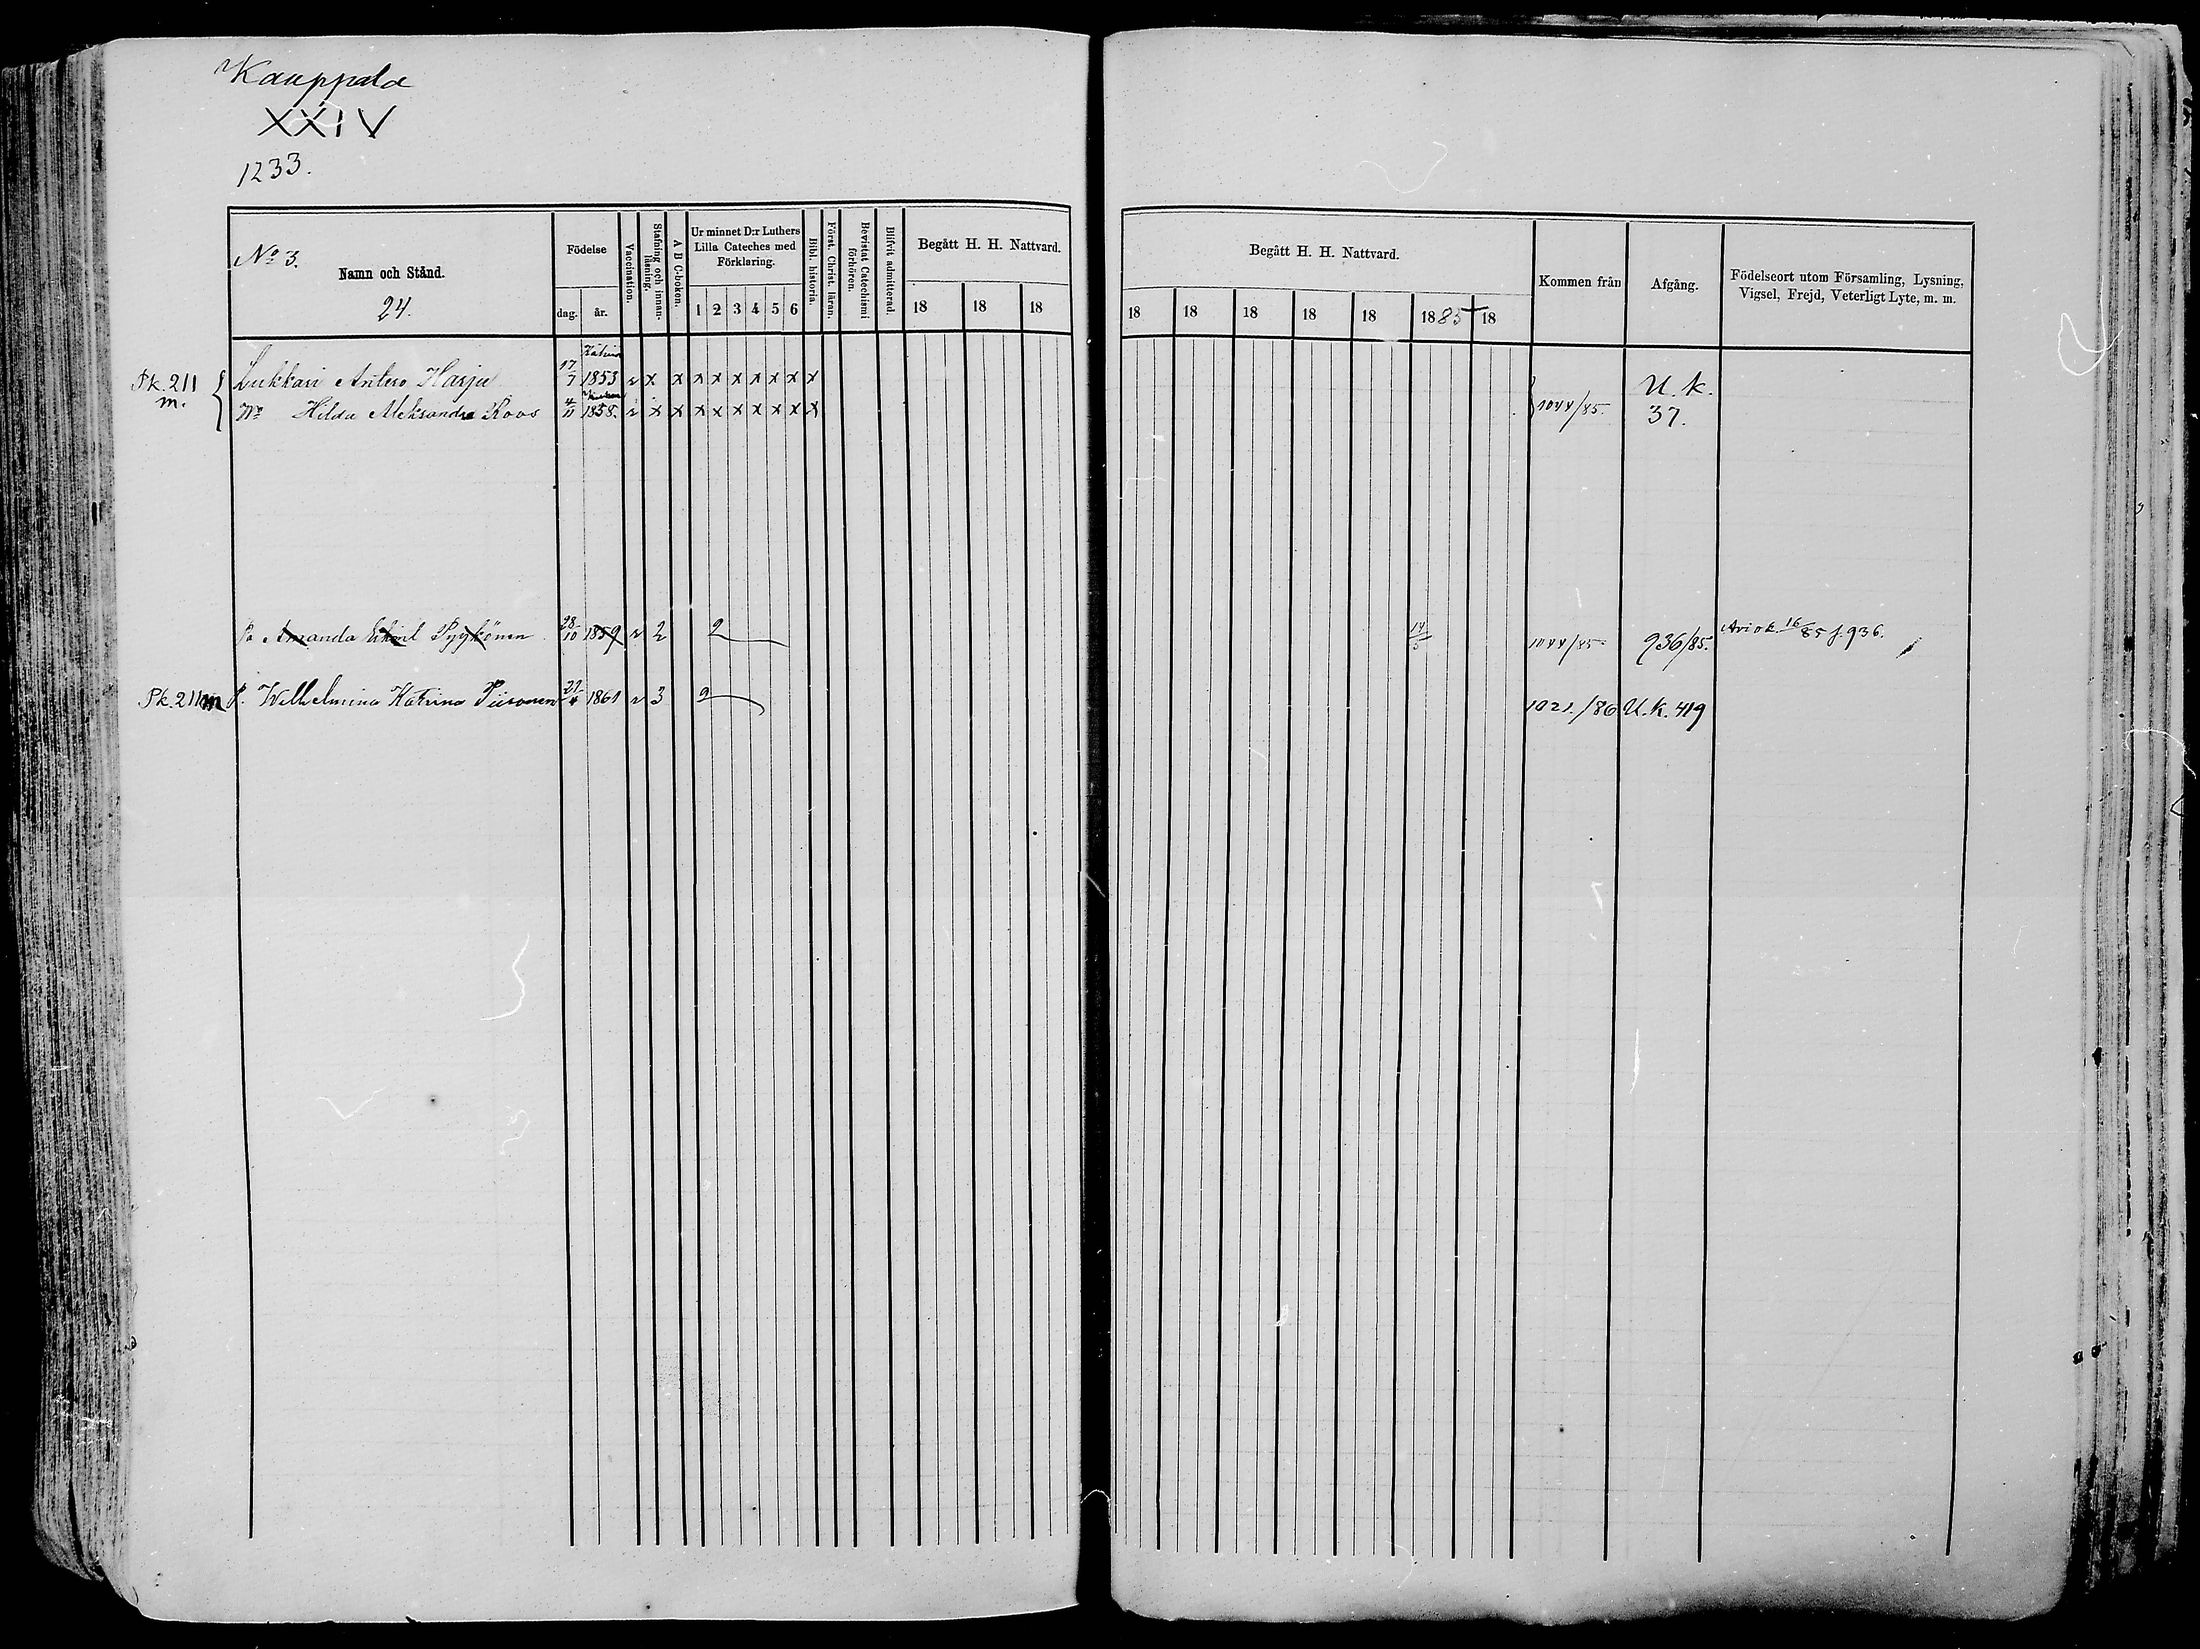 Kauppala
XXIV
1233.
No 3.
Namn och Stånd.
24.
Födelse
dag. år.
Vaccination.
Stafning och innanläsning.
A B C-boken.
Ur minnet D:r Luthers
Lilla Cateches med
Förklaring.
1 2 3 4 5 6
Bibl. historia.
Först. Christ. läran.
Bevistat Catechismi förhören.
Blifvit admitterad.
Begått H. H. Nattvard.
18 18 18
Begått H. H. Nattvard.
18 18 18 18 18 1885 18
Kommen från
Afgång.
Födelseort utom Församling, Lysning,
Vigsel, Frejd, Veterligt Lyte, m. m.
Pk. 211 m. Lukkari Antero Harju 17/7 1853 v x x x x x x x x x 1044/85. U. k. 37.
Wo Hilda Aleksandra Roos 4/11 1858. v x x x x x x x x x
Po Amanda Pyykönen 28/10 1859 v 2 2 14/5 1044/85 936/85. Aviok. 16/85 f. 936.
Pk. 211 m P. Wilhelmina Katrina Piisonen 21/4 1861 v 3 2 1021./86 U. k. 419